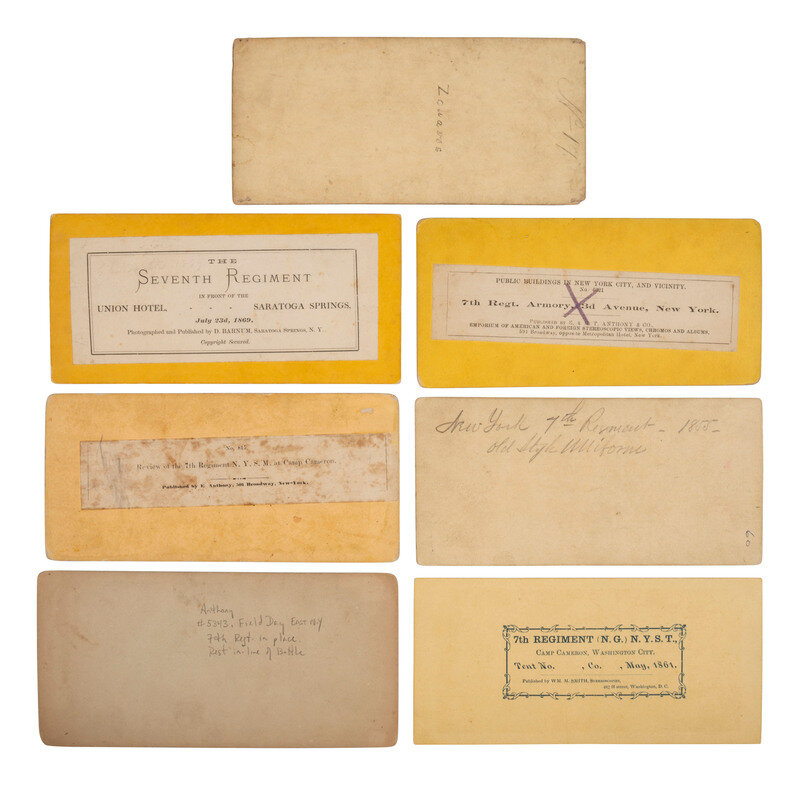 Zouaves
THE
SEVENTH REGIMENT
IN FRONT OF THE
UNION HOTEL, - SARATOGA SPRINGS,
July 23d, 1869.
Photographed and Published by D. BARNUM, SARATOGA SPRINGS, N. Y.
Copyright Secured.
PUBLIC BUILDINGS IN NEW YORK CITY, AND VICINITY.
No.
7th Regt. Armory, 3d Avenue, New York.
PUBLISHED BY E. & H. T. ANTHONY & CO.
EMPORIUM OF AMERICAN AND FOREIGN STEREOSCOPIC VIEWS, CHROMOS AND ALBUMS,
591 Broadway, Opposite Metropolitan Hotel, New York.
No. 815
Review of the 7th Regiment N. Y. S. M. at Camp Cameron.
Published by E. Anthony, 501 Broadway, New-York.
New York 7th Regiment - 1855 -
old Style Uniforms
60
Anthony
#5343. Field Day East NY
7th Regt. in place
Rest in line of Battle
7th REGIMENT (N. G.) N. Y. S. T.,
CAMP CAMERON, WASHINGTON CITY.
Tent No. , Co. , May, 1861.
Published by WM. M. SMITH, STEREOSCOPIST,
H street, Washington, D. C.